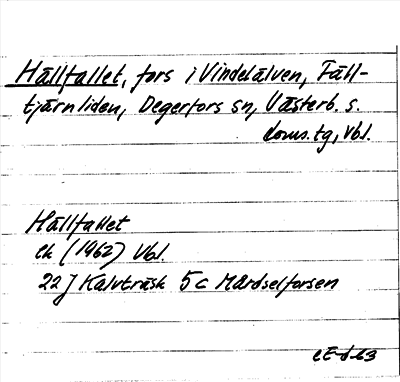 Hällfallet, fors i Vindelälven, Fäll-
tjärnliden, Degerfors sn, Västerb. s.
doms.tg, Vbl.
Hällfallet
ek (1962) Vbl.
22J Kalvträsk 5c Mårdselforsen